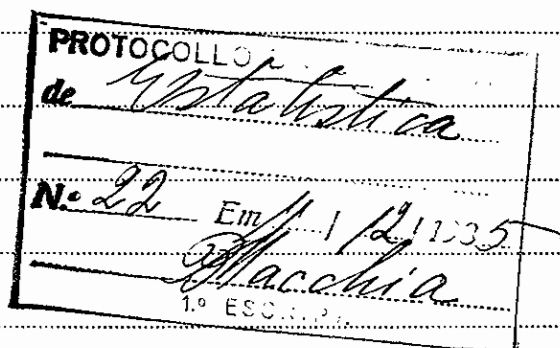 PROTOCOLLO
de Estatistica
N.º 22 Em 1 / 2 / 1935
Macchia
1.º ESCRIPT.